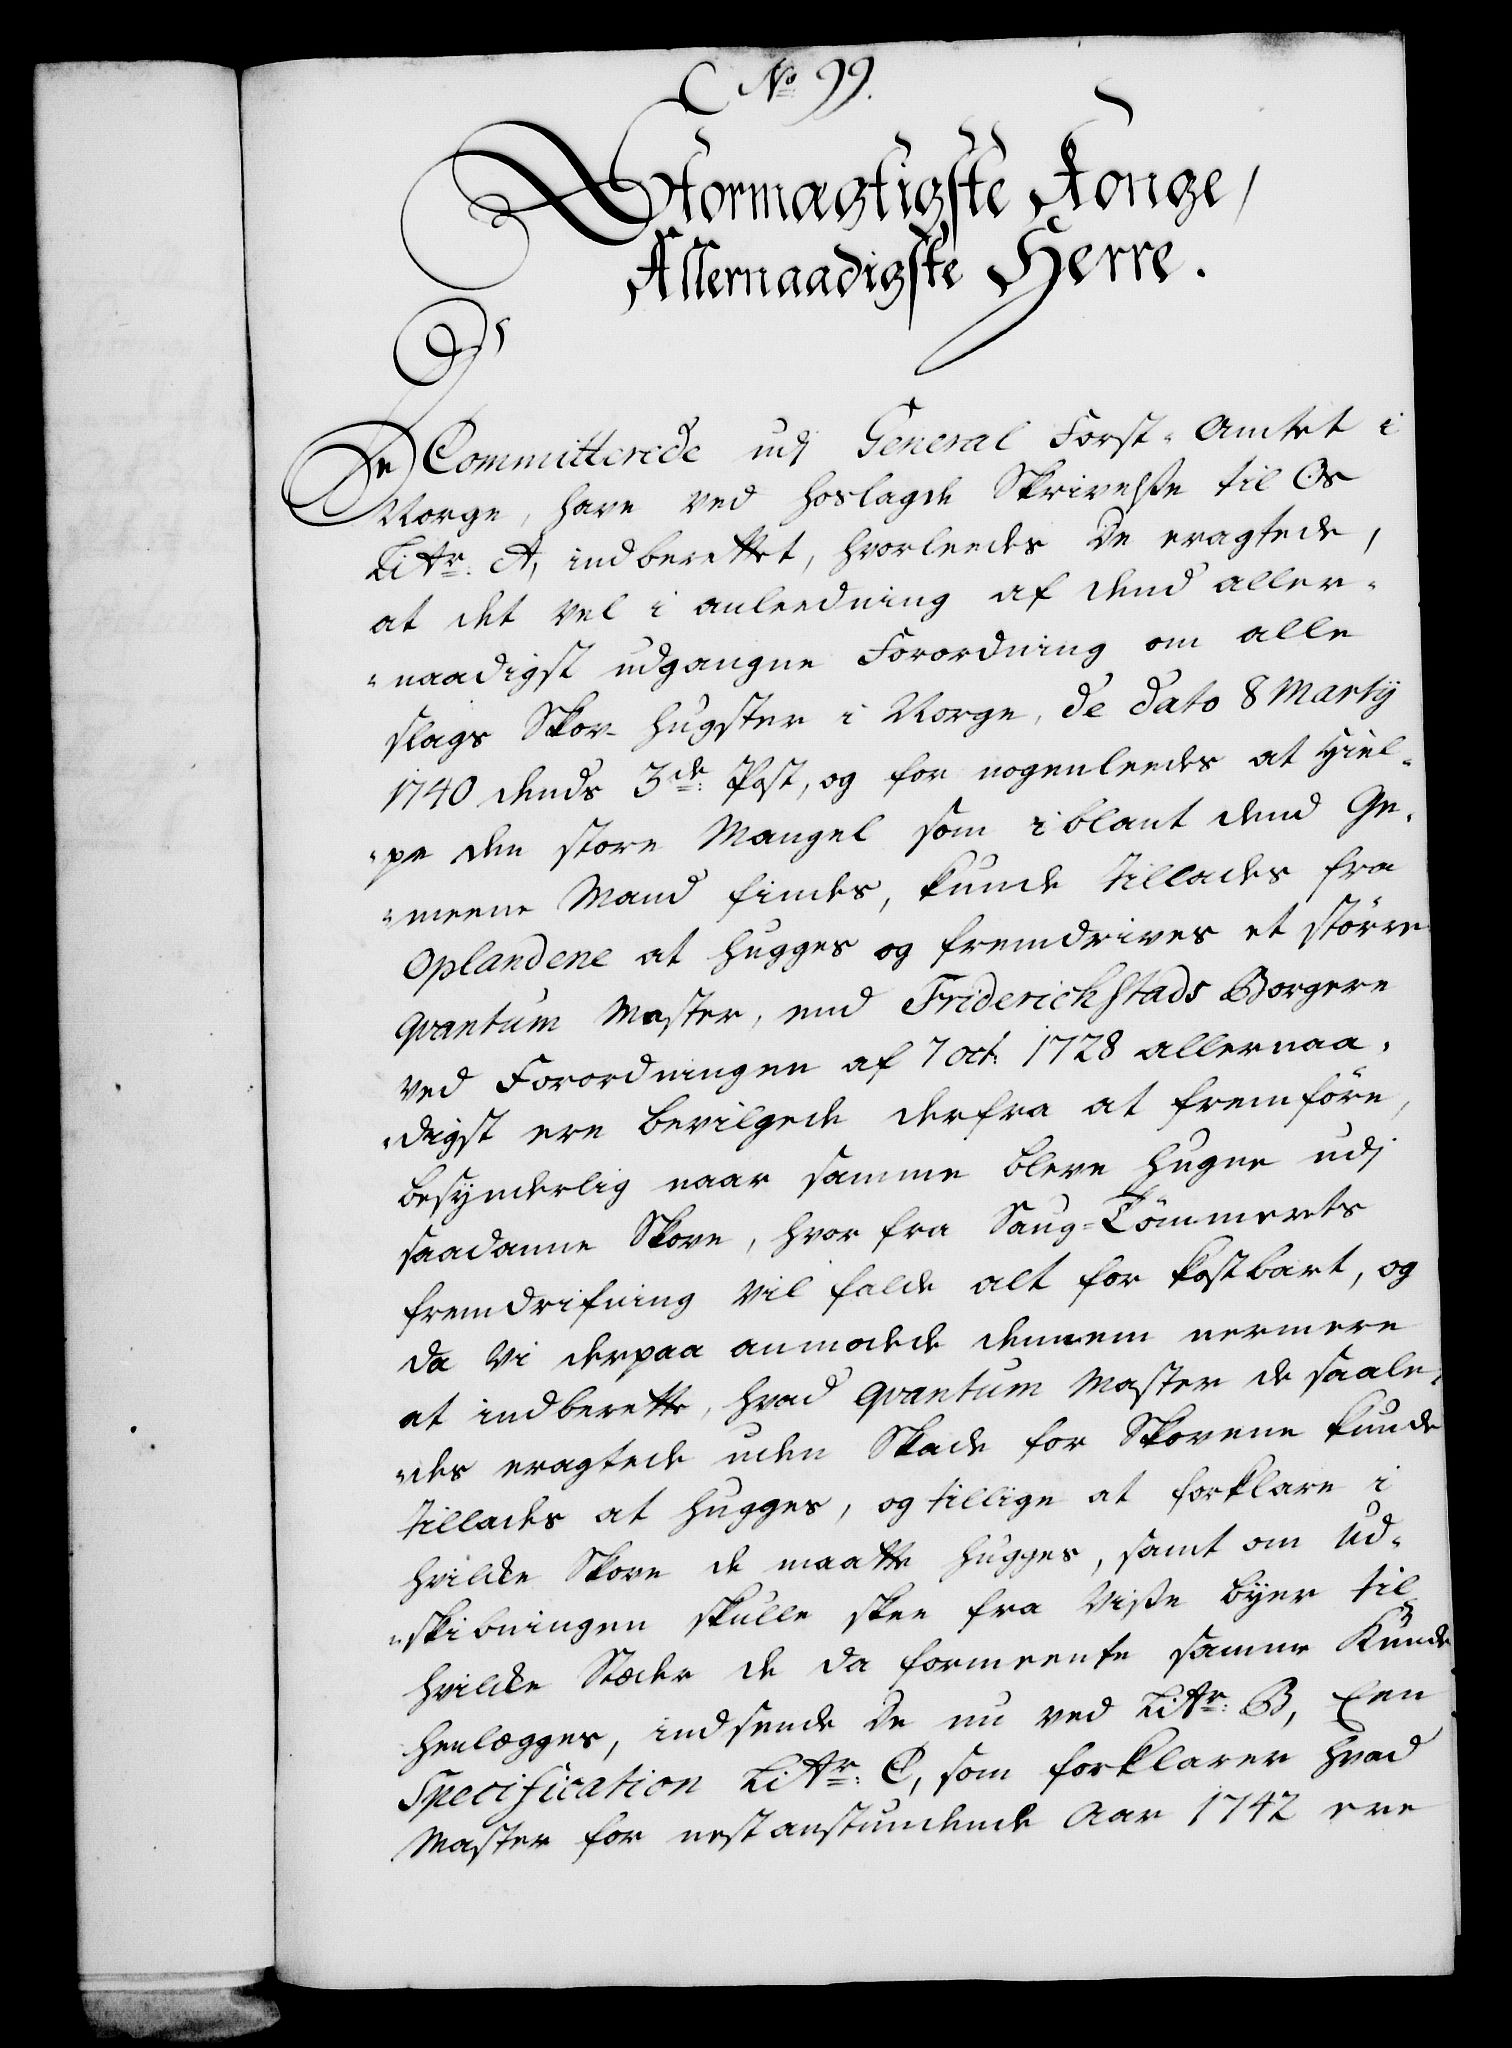 No 99.
Stormægtigste Konge,
Allernaadigste Herre.
De Committerede udj General Forst-Amtet i
Norge, have ved hoslagde Skrivelsse til Os
Littr: A, indberettet, hvorleedes De eragtede,
at det vel i anleedning af dend aller-
naadigst udgangne Forordning om alle
slags Skov-hugster i Norge, de dato 8 Martij
1740 dends 3de: Post, og for nogenleedes at Hiel-
pe den store Mangel som iblant dend Ge-
meene Mand findes, kunde tillades fra
Oplandene at hugges og fremdrives et större
qvantum Master, end Friderichstads Borgere
ved Forordningen af 7 oct: 1728 allernaa-
digst ere bevilgede derfra at fremföre,
besynderlig naar samme bleve hugne udj
saadanne Skove, hvor fra Saug-Tömmerets
fremdrifning vil falde alt for kostbart, og
da Vi derpaa anmodede dennem nermere
at indberette, hvad qvantum Master de saale-
des eragtede uden Skade for Skovene kunde
tillades at hugges, og tillige at forklare i
hvilcke Skove de maatte hugges, samt om Ud-
skibningen skulle skee fra visse byer til
hvilcke Stæder de da formeente samme Kunde
henlægges, indsende De nu ved Littr: B, Een
Specification Littr: C, som forklarer hvad
Master for nest anstundende Aar 1742 ere